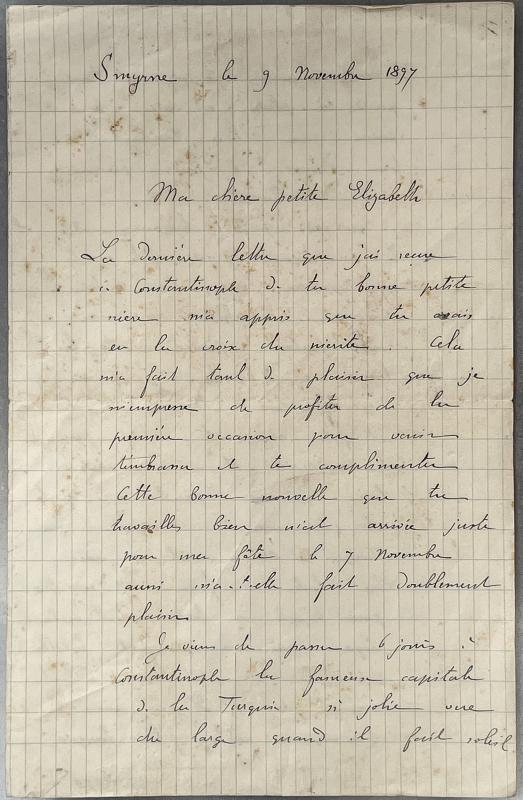 Smyrne le 9 Novembre 1897
Ma chère petite Elizabeth
La dernière lettre que j'ai reçue
à Constantinople de ta bonne petite
mère m'a appris que tu avais
eu la croix du mérite. Cela
m'a fait tant de plaisir que je
m'empresse de profiter de la
première occasion pour venir
t'embrasser et te complimenter
Cette bonne nouvelle que tu
travailles bien m'est arrivée juste
pour ma fête le 7 Novembre
aussi m'a-t-elle fait doublement
plaisir
Je viens de passer 6 jours à
Constantinople la fameuse capitale
de la Turquie si jolie vue
du large quand il fait soleil